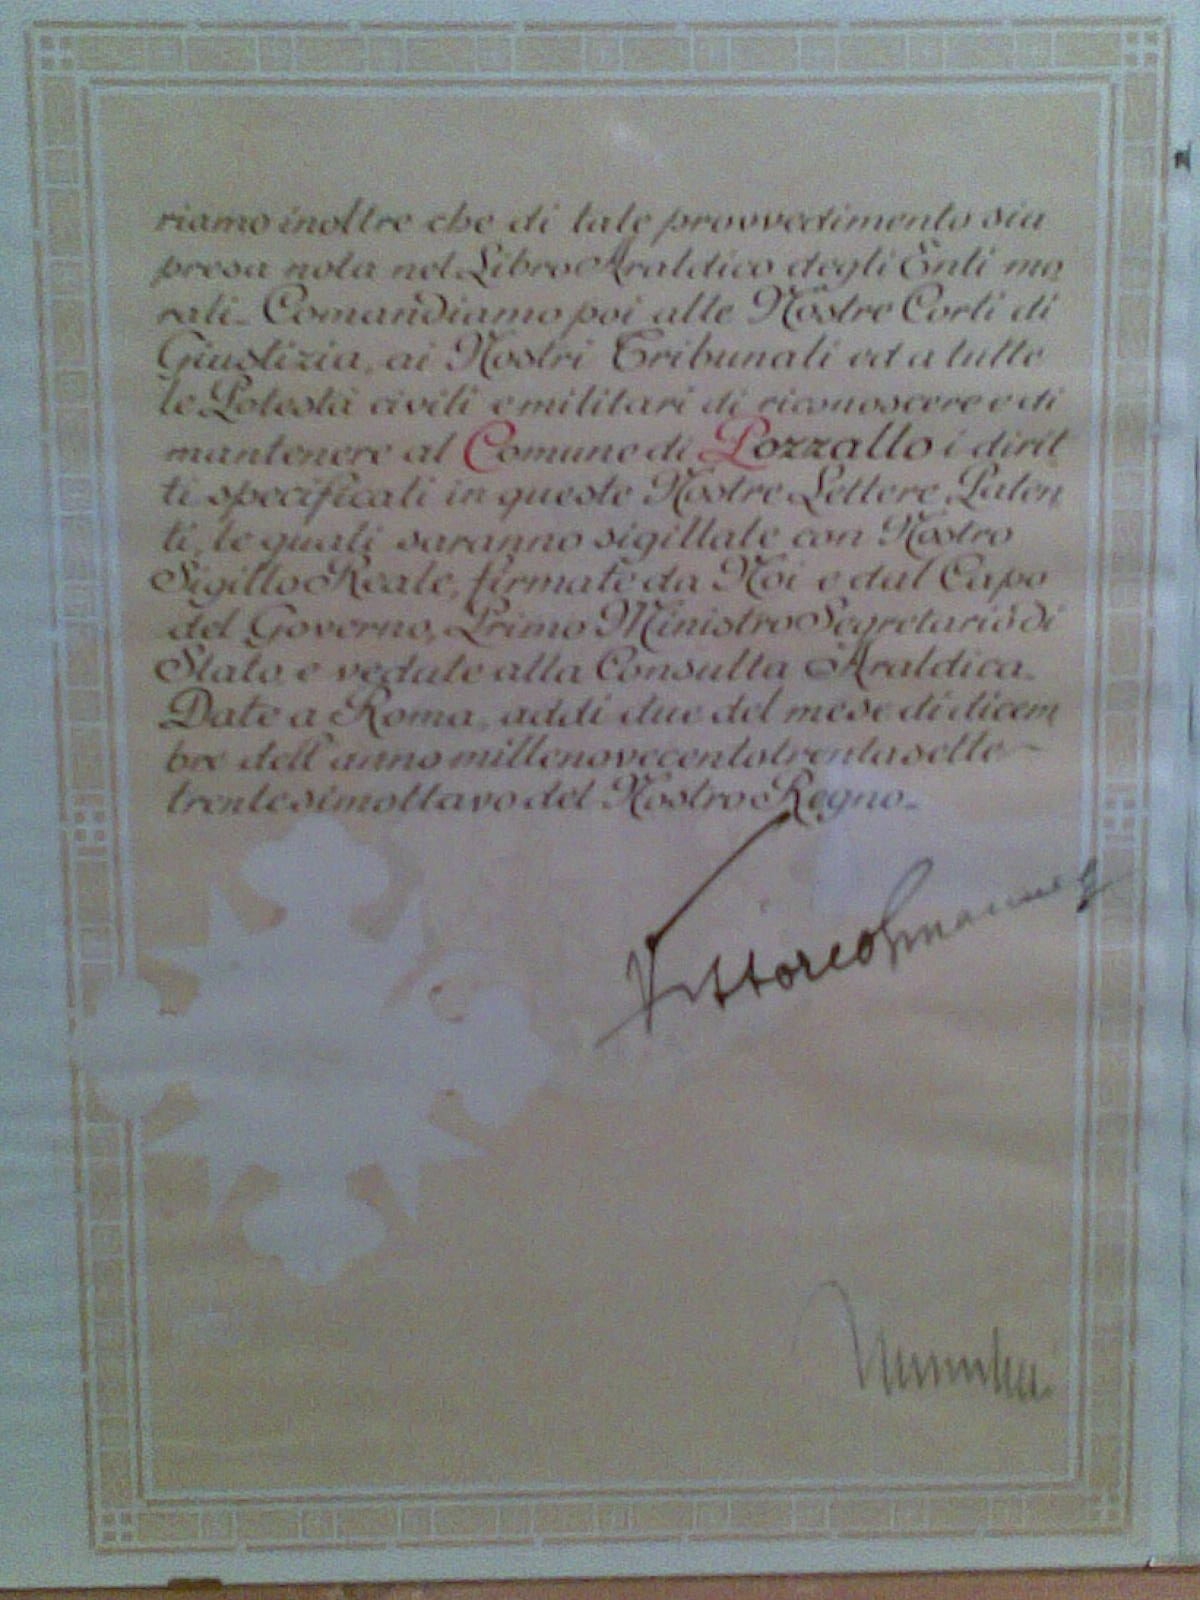 riamo inoltre che di tale provvedimento sia
presa nota nel Libro Araldico degli Enti mo
rali. Comandiamo poi alle Nostre Corti di
Giustizia, ai Nostri Tribunali ed a tutte
le Potestà civili e militari di riconoscere e di
mantenere al Comune di Pozzallo i dirit
ti specificati in queste Nostre Lettere Paten
ti, le quali saranno sigillate con Nostro
Sigillo Reale, firmate da Noi e dal Capo
del Governo, Primo Ministro Segretario di
Stato e vedute alla Consulta Araldica.
Date a Roma, addì due del mese di dicem
bre dell'anno millenovecentotrentasette
trentesimottavo del Nostro Regno.
Vittorio Emanuele
Mussolini